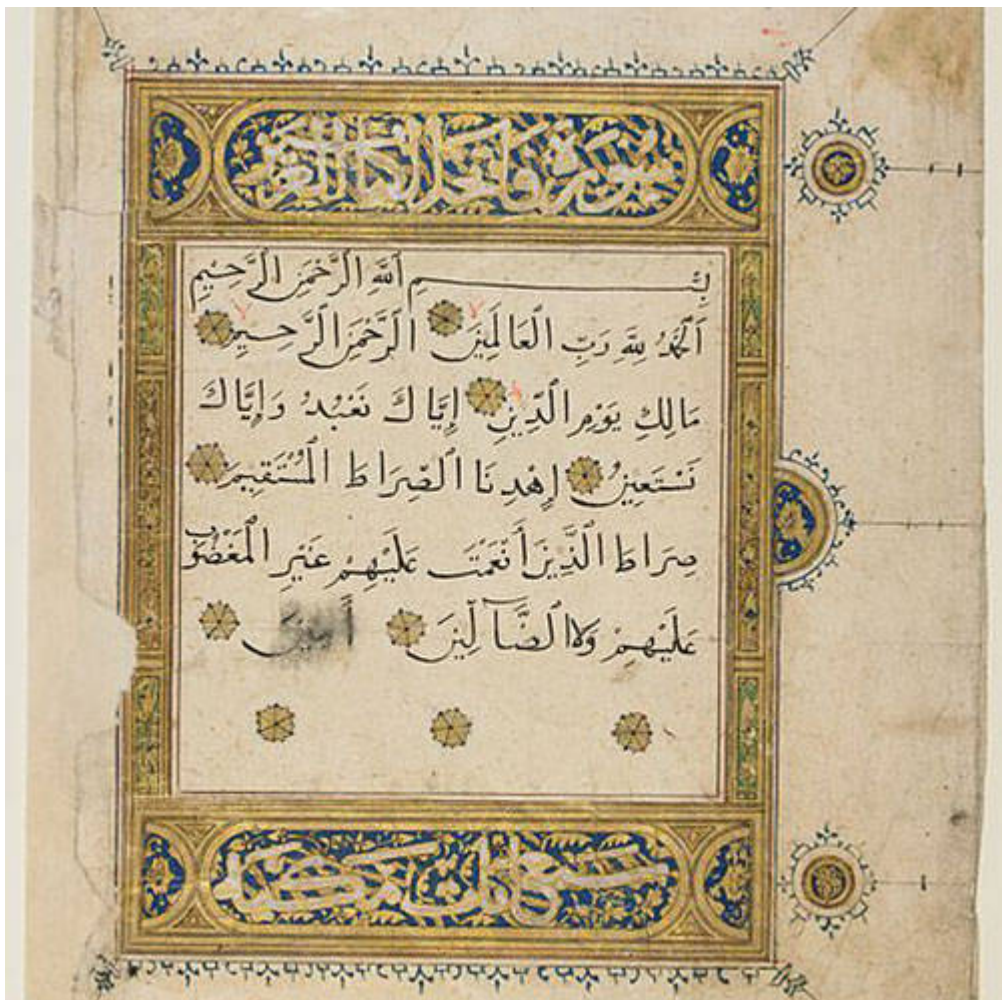 سورة فاتحة الكتاب
بِسْمِ اللَّهِ الرَّحْمَٰنِ الرَّحِيمِ
اَلْحَمْدُ لِلَّهِ رَبِّ الْعَالَمِينَ الرَّحْمَٰنِ الرَّحِيمِ
مَالِكِ يَوْمِ الدِّينِ إِيَّاكَ نَعْبُدُ وَإِيَّاكَ
نَسْتَعِينُ إِهْدِنَا الصِّرَاطَ الْمُسْتَقِيمَ
صِرَاطَ الَّذِينَ أَنْعَمْتَ عَلَيْهِمْ غَيْرِ الْمَغْضُوبِ
عَلَيْهِمْ وَلَا الضَّآلِّينَ أمين